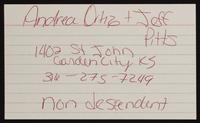 Andrea Ortiz + Jeff
Pitts
1402 St John
Garden City KS
316-275-7249
non descendant